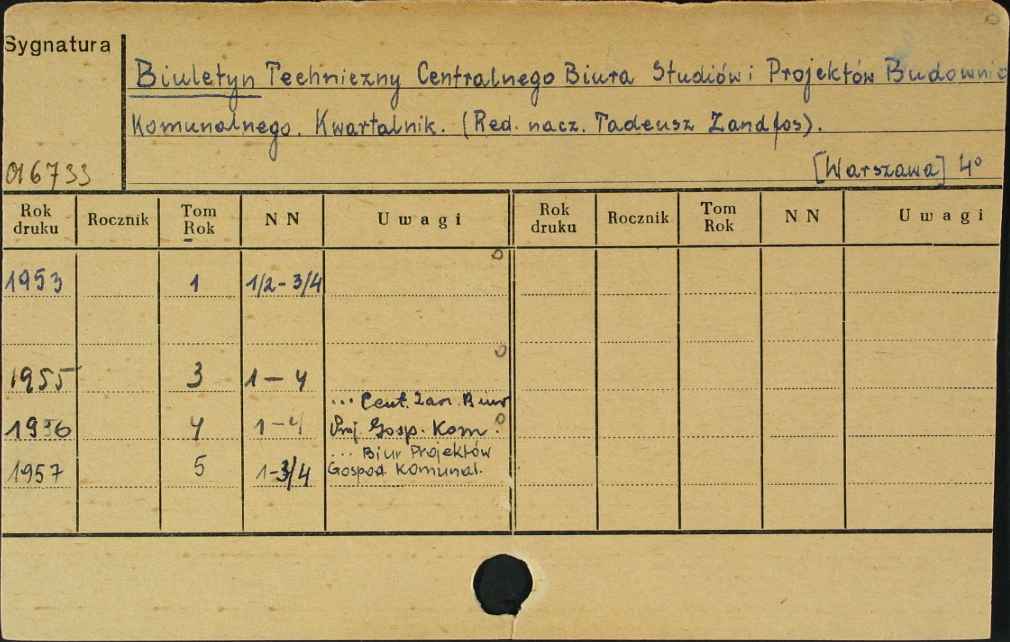 Sygnatura
Biuletyn Techniczny Centralnego Biura Studiów i Projektów Budownic
Komunalnego. Kwartalnik. (Red. nacz. Tadeusz Zandfos).
016733 [Warszawa] 4°
Rok druku Rocznik Tom Rok NN Uwagi Rok druku Rocznik Tom Rok NN Uwagi
1953 1 1/2-3/4
1955 3 1-4
... Cent. Zarz. Biur
1956 4 1-4 Proj. Gosp. Kom.
... Biur Projektów
1957 5 1-3/4 Gospod. Komunal.